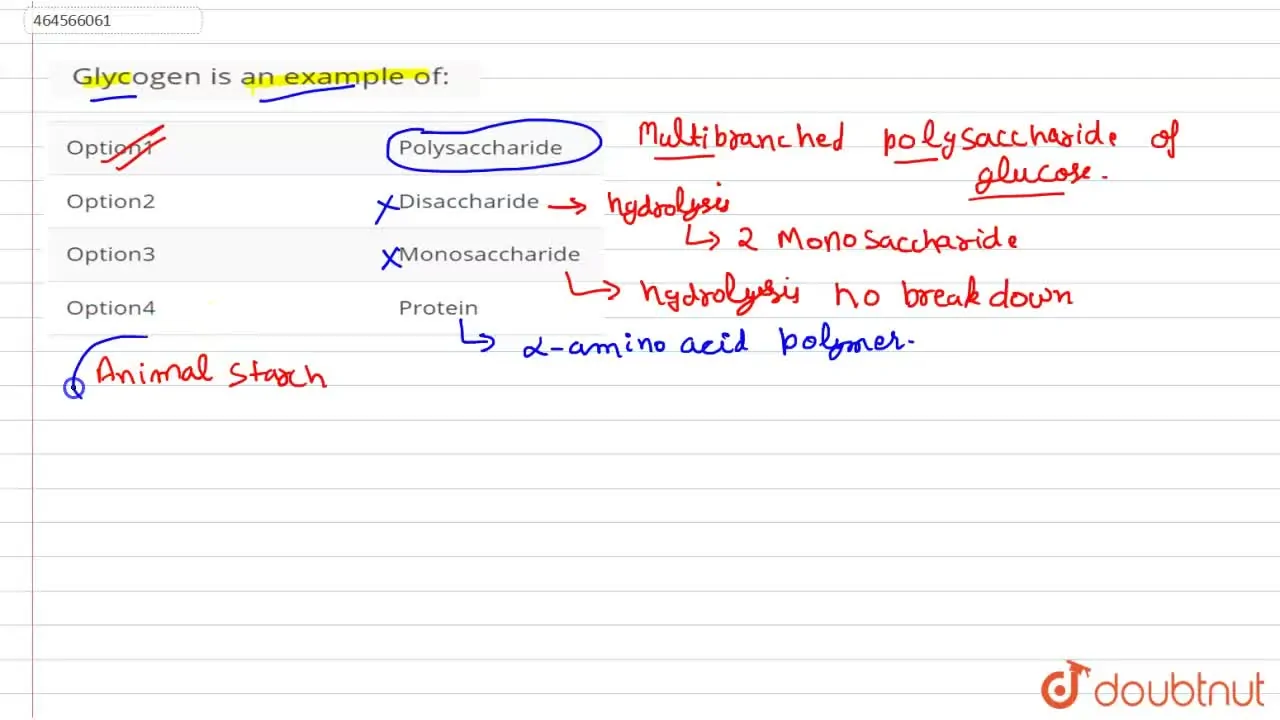 464566061
Glycogen is an example of:
Option1 Polysaccharide Multibranched polysaccharide of
glucose.
Option2 Disaccharide → hydrolysis
↳ 2 Monosaccharide
Option3 Monosaccharide
↳ hydrolysis no breakdown
Option4 Protein
↳ α-amino acid polymer.
Animal Starch
doubtnut